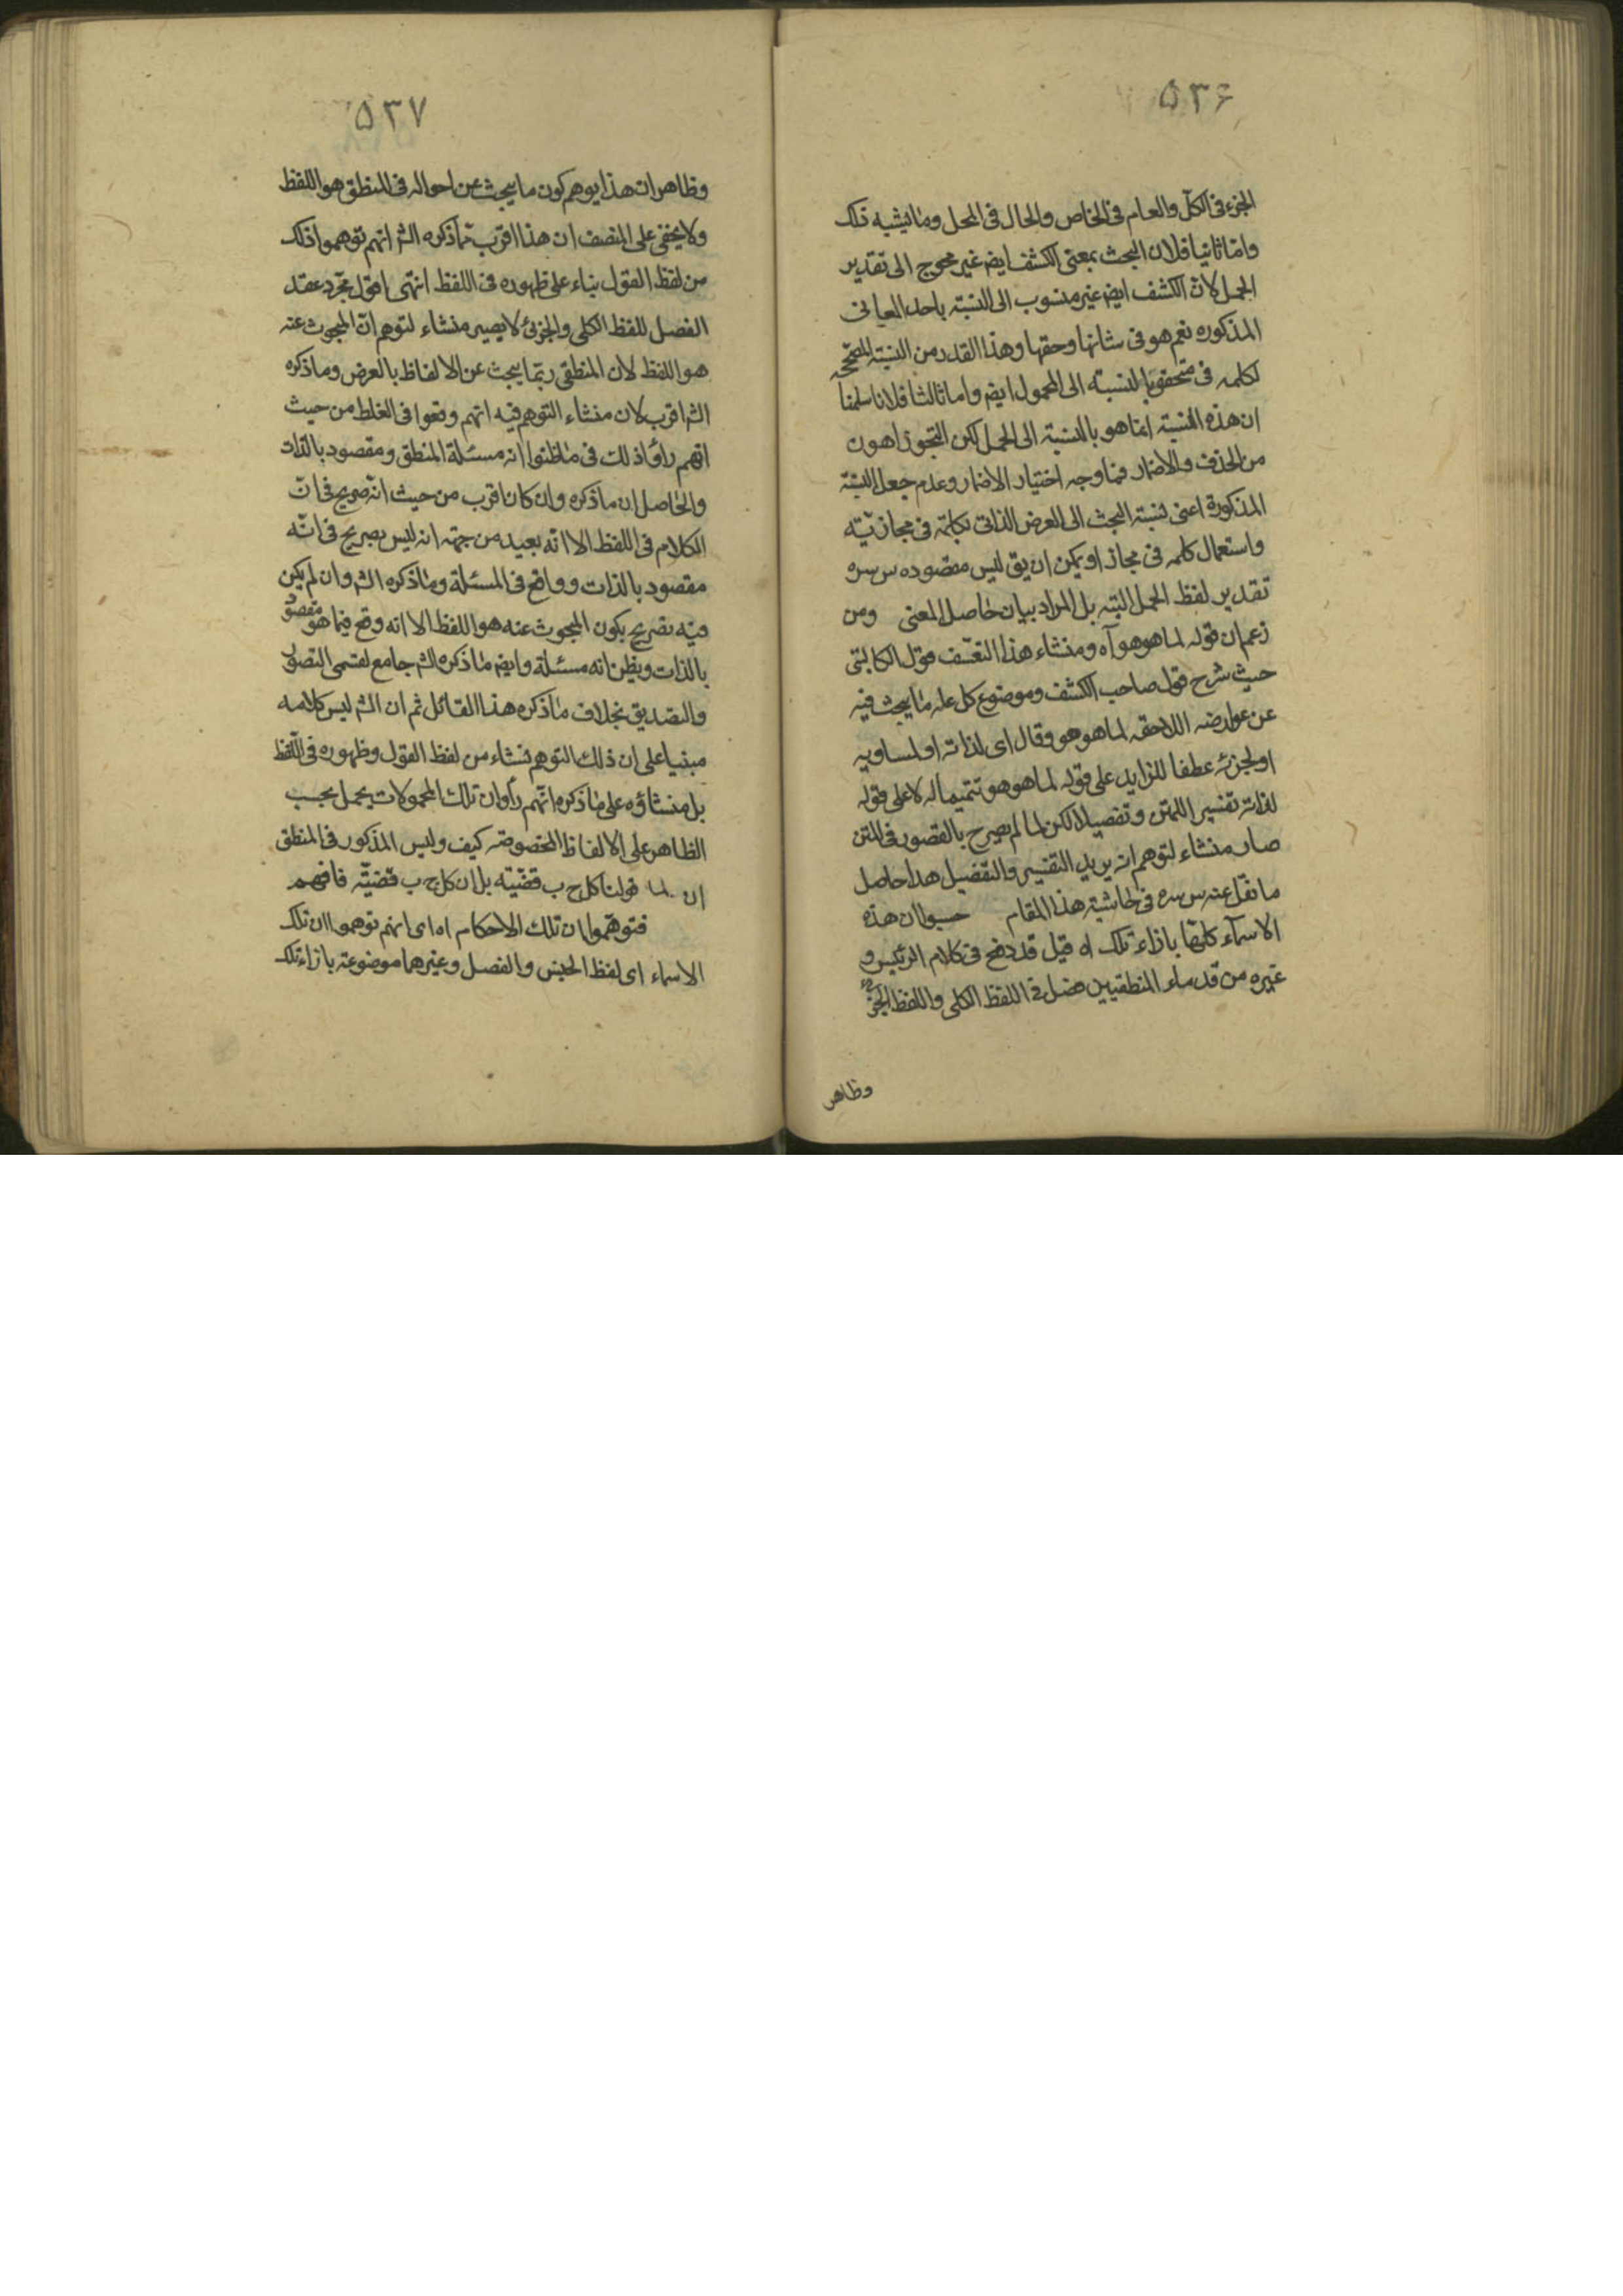 ۵۳۶
الجزء فى الكل والعام فى الخاص والحال فى المحل وما يشبه ذلك
واما ثانيا فلان البحث بمعنى الكشف ايض غير محوج الى تقدير
الحمل لان الكشف ايض غير منسوب الى النسبة باحد المعانى
المذكوره نعم هو فى شانها وحقها وهذا القدر من النسبة المصححه
لكلمه فى متحقق بالنسبته الى المحمول ايض واما ثالثا فلانا سلمنا
ان هذه النسبة انما هو بالنسبة الى الحمل لكن التجوز اهون
من الحذف والاضمار فما وجه اختيار الاضمار وعدم جعل النسبة
المذكورة اعنى نسبة البحث الى العرض الذاتى بكلمة فى مجازيته
واستعمال كلمه فى مجاز او يمكن ان يق ليس مقصوده س سره
تقدير لفظ الحمل البته بل المراد بيان حاصل المعنى ومن
زعم ان قوله لما هو هو آه ومنشاء هذا التعسف قول الكاتبى
حيث شرح قول صاحب الكشف وموضوع كل علم ما يبحث فيه
عن عوارضه اللاحقه لما هو هو وقال اى لذاته او لمساويه
او لجزئه عطفا للزايد على قوله لما هو هو تتميما له لا على قوله
لذاته تفسير اللمتن وتفصيلا لكن لما لم يصرح بالقصور فى المتن
صار منشاء لتوهم انه يريد التفسير والتفصيل هذا حاصل
ما نقل عنه س سره فى حاشية هذا المقام حسبوا ان هذه
الاسمآء كلها بازاء تلك اه قيل قد وضح فى كلام الرئيس و
غيره من قدماء المنطقيين فصل فى اللفظ الكلى واللفظ الجزئ
وظاهر
۵۳۷
وظاهر ان هذا يوهم كون ما يبحث عن احواله فى المنطق هو اللفظ
ولا يخفى على المنصف ان هذا اقرب مما ذكره الش انهم توهموا ذلك
من لفظ القول بناء على ظهوره فى اللفظ انتهى اقول مجرد عقد
الفصل للفظ الكلى والجزئ لا يصير منشاء لتوهم ان المبحوث عنه
هو اللفظ لان المنطقى ربما يبحث عن الالفاظ بالعرض وما ذكره
الش اقرب لان منشاء التوهم فيه انهم وقعوا فى الغلط من حيث
انهم رأوا ذلك فى ما ظنوا انه مسئلة المنطق ومقصود بالذات
والحاصل ان ما ذكره وان كان اقرب من حيث انه صريح فى ان
الكلام فى اللفظ الا انه بعيد من جهة انه ليس بصريح فى انه
مقصود بالذات وواقع فى المسئلة وما ذكره الش وان لم يكن
فيه تصريح بكون المبحوث عنه هو اللفظ الا انه وقع فيما هو مقصود
بالذات ويظن انه مسئلة وايض ما ذكره الش جامع لقسمى التصور
والتصديق بخلاف ما ذكره هذا القائل ثم ان الش ليس كلامه
مبنيا على ان ذلك التوهم نشاء من لفظ القول وظهوره فى اللفظ
بل منشاؤه على ما ذكره انهم رأوا ان تلك المحمولات يحمل بحسب
الظاهر على الالفاظ المخصوصة كيف وليس المذكور فى المنطق
ان قولنا كل ج ب قضيته بل ان كل ج ب قضيّة فافهم
فتوهموا ان تلك الاحكام اه اى انهم توهموا ان تلك
الاسماء اى لفظ الجنس والفصل وغيرهما موضوعة بازاء تلك